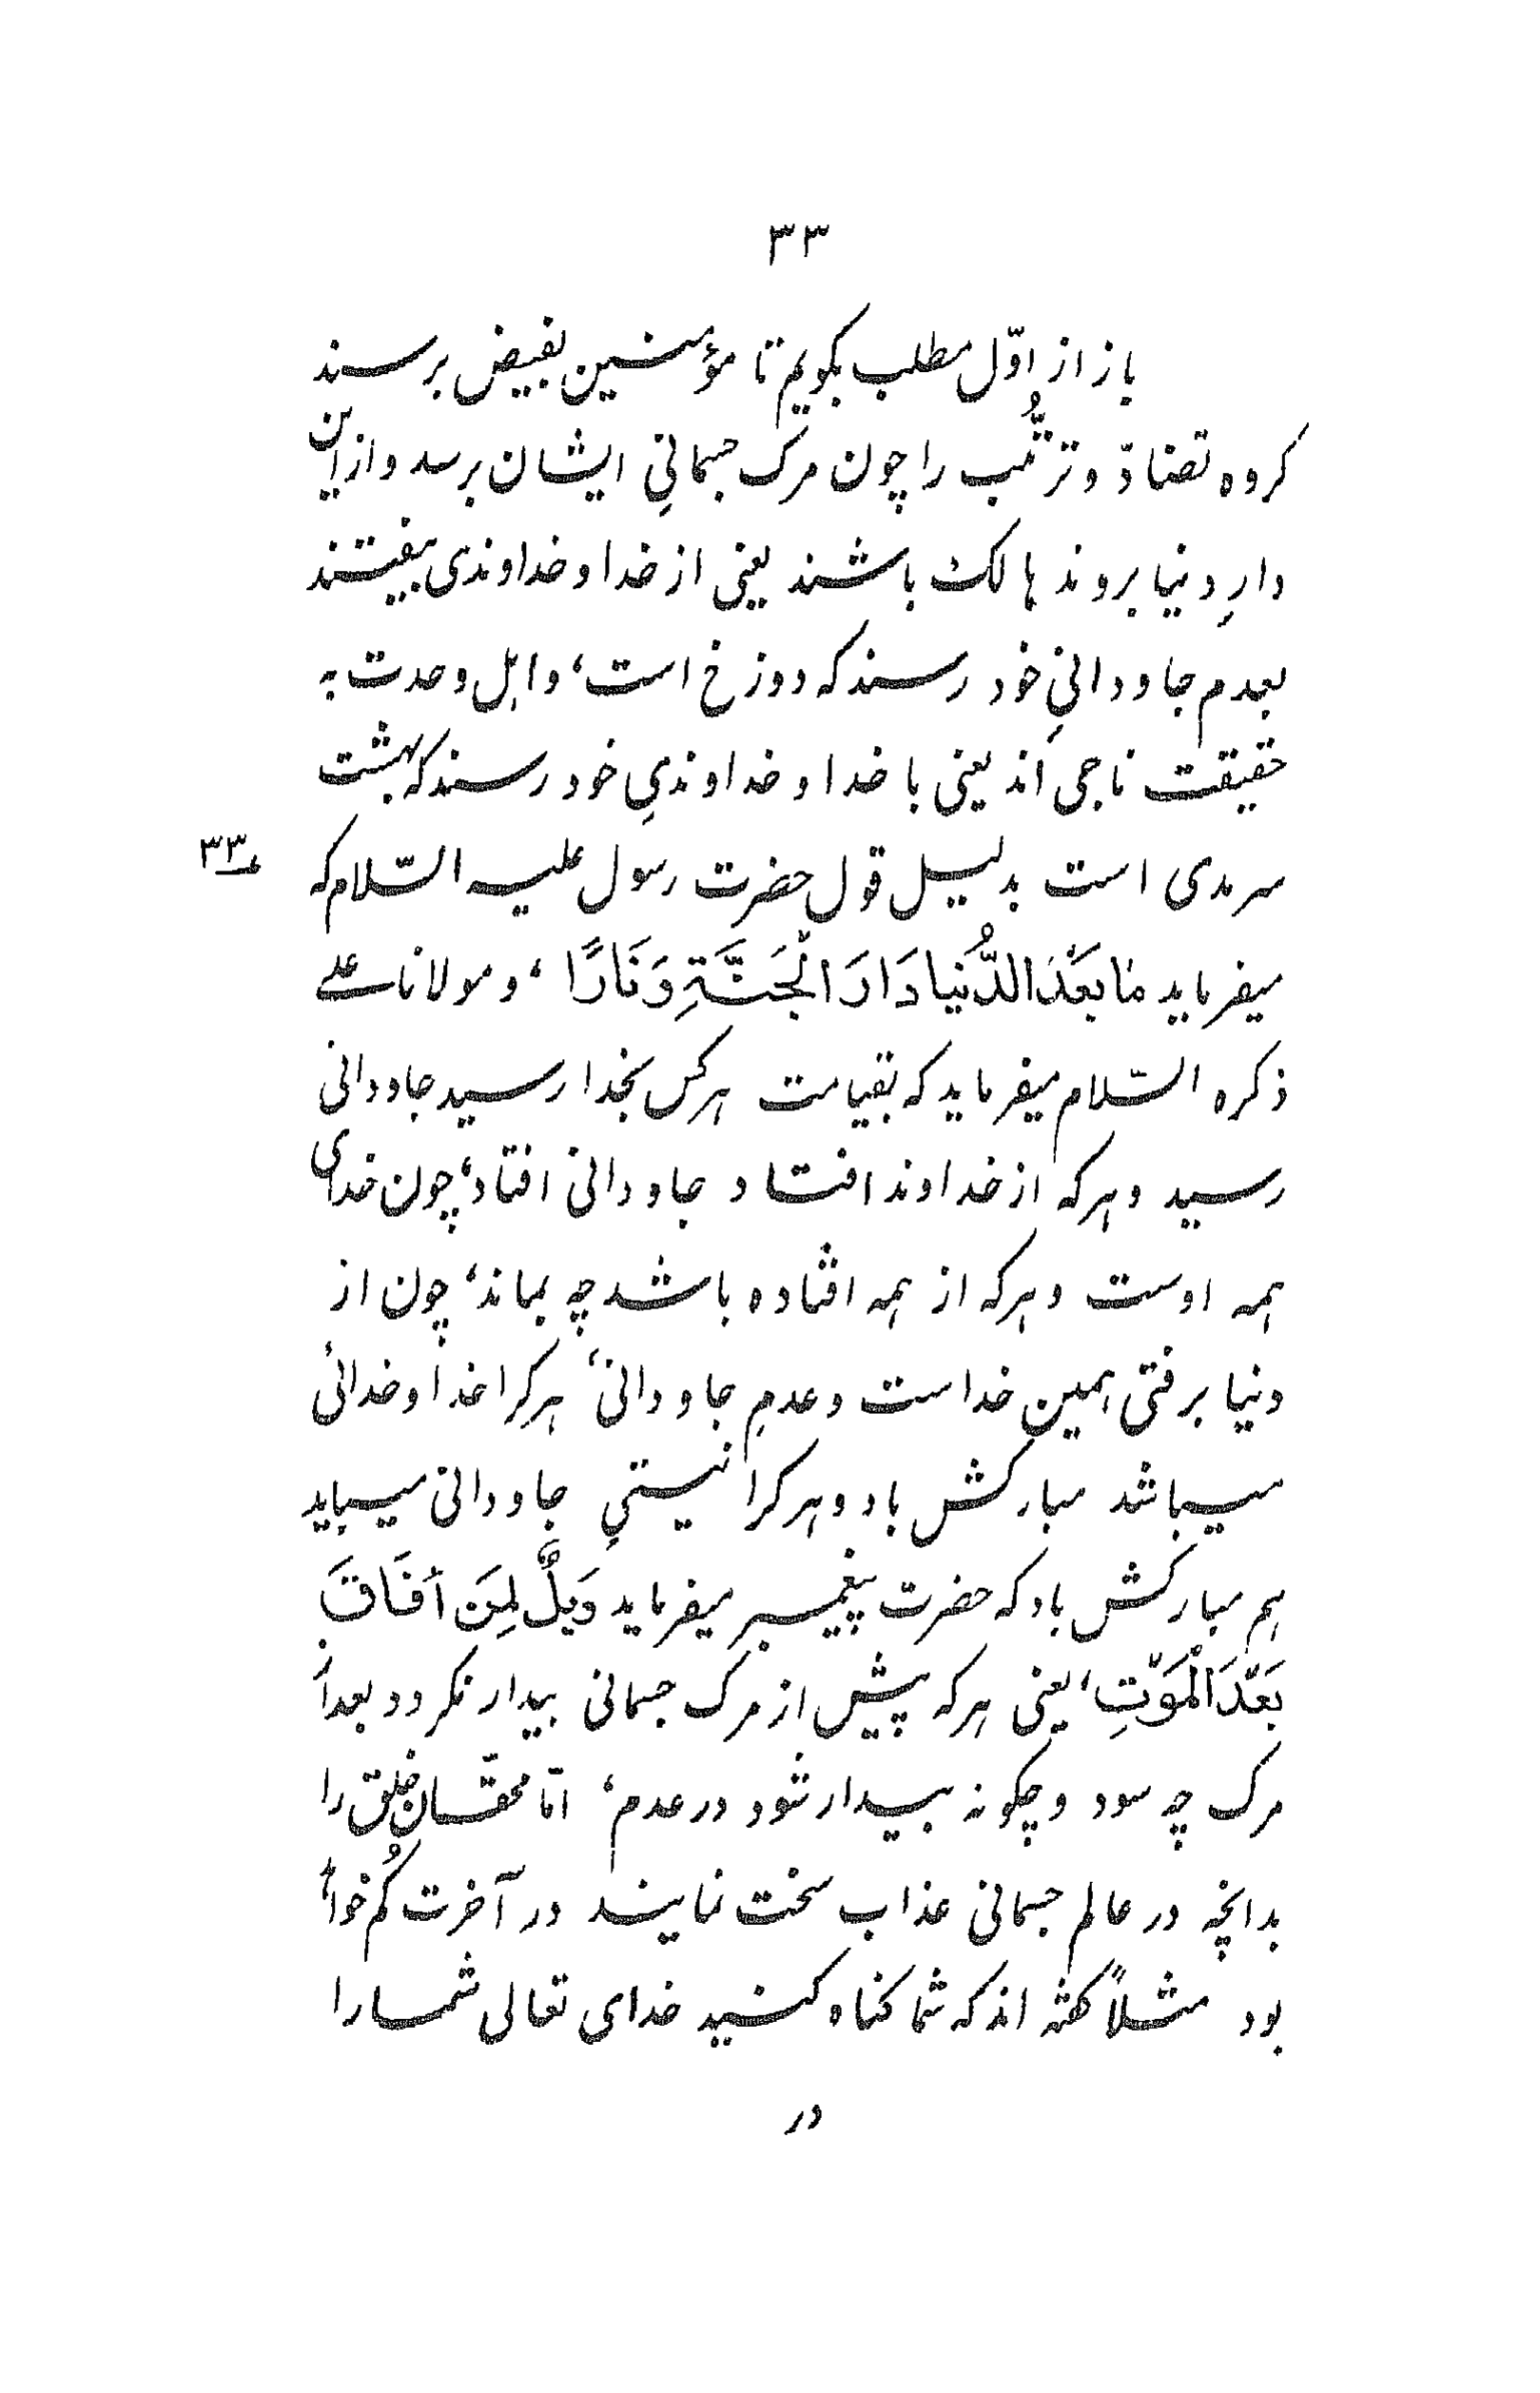 ۳۳
باز از اوّل مطلب بکویم تا مؤمنین بفیض برسند
کروه تضادّ و ترتُّب را چون مرک جسمانیِ ایشان برسد و ازین
دارِ دنیا بروند هالک باشند یعنی از خدا و خداوندی بیفتند
بعدم جاودانیِ خود رسند که دوزخ است، و اهل وحدت به
حقیقت ناجی اند یعنی با خدا و خداوندیِ خود رسند که بهشت
سرمدی است بدلیل قول حضرت رسول علیه السّلام که
ع۳۳
میفرماید مَا بَعْدَ الدُّنْیا دَارَ الْجَنَّةِ وَنَارًا، و مولانا علی
ذکره السّلام میفرماید که بقیامت هرکس بخدا رسید جاودانی
رسید و هرکه از خداوند افتاد جاودانی افتاد، چون خدای
همه اوست و هرکه از همه افتاده باشد چه بماند، چون از
دنیا برفتی همین خداست و عدمِ جاودانی، هرکرا خدا و خدائی
میباشد مبارکش باد و هرکرا نیستیِ جاودانی میباید
هم مبارکش باد که حضرت پیغمبر میفرماید وَیْلٌ لِمَنْ أَفَاقَ
بَعْدَ الْمَوْتِ، یعنی هرکه پیش از مرک جسمانی بیدار نکردد بعد از
مرک چه سود و چکونه بیدار شود در عدم، امّا محقّان خلق را
بدانچه در عالم جسمانی عذاب سخت نمایند در آخرت کُم
بود مثلاً کفته اند که شما کناه کنید خدای تعالی شما را
در